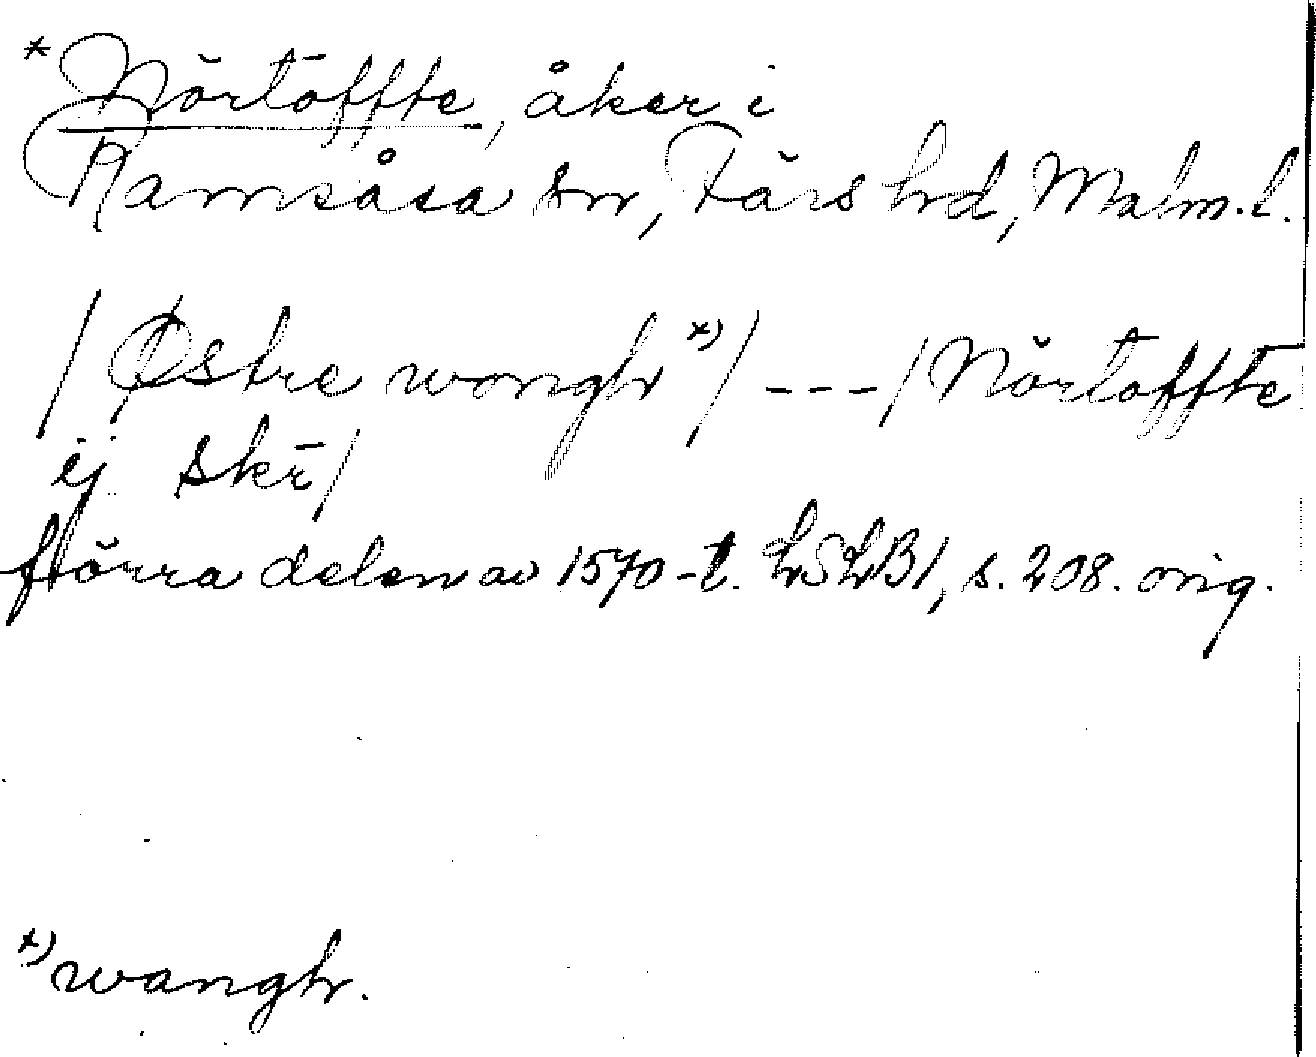 * Nörtoffte, åker i
Ramsåsa sn, Färs hd, Malm. l.
/ Østre wongh *) / - - - / Nörtoffte
ij skr̄ /
förra delen av 1570-t. LSLB1, s. 208. orig.
*) wangh.